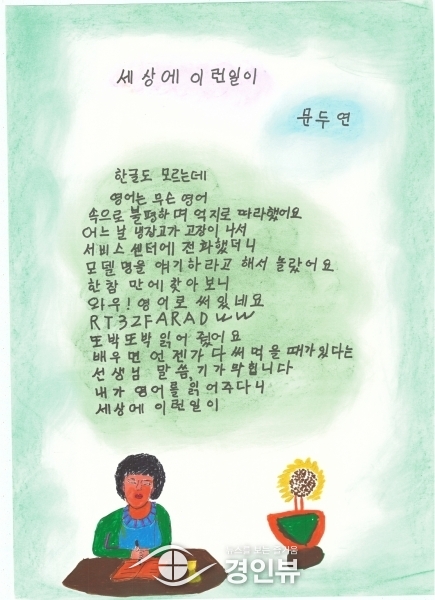 세상에 이런일이
문두연
한글도 모르는데
영어는 무슨 영어
속으로 불평하며 억지로 따라했어요
어느 날 냉장고가 고장이 나서
서비스 센터에 전화했더니
모델명을 얘기하라고 해서 놀랐어요
한참 만에 찾아보니
와우! 영어로 써있네요
RT32FARADWW
또박또박 읽어 줬어요
배우면 언젠가 다 써먹을 때가있다는
선생님 말씀, 기가막힙니다
내가 영어를 읽어주다니
세상에 이런일이
경인뷰